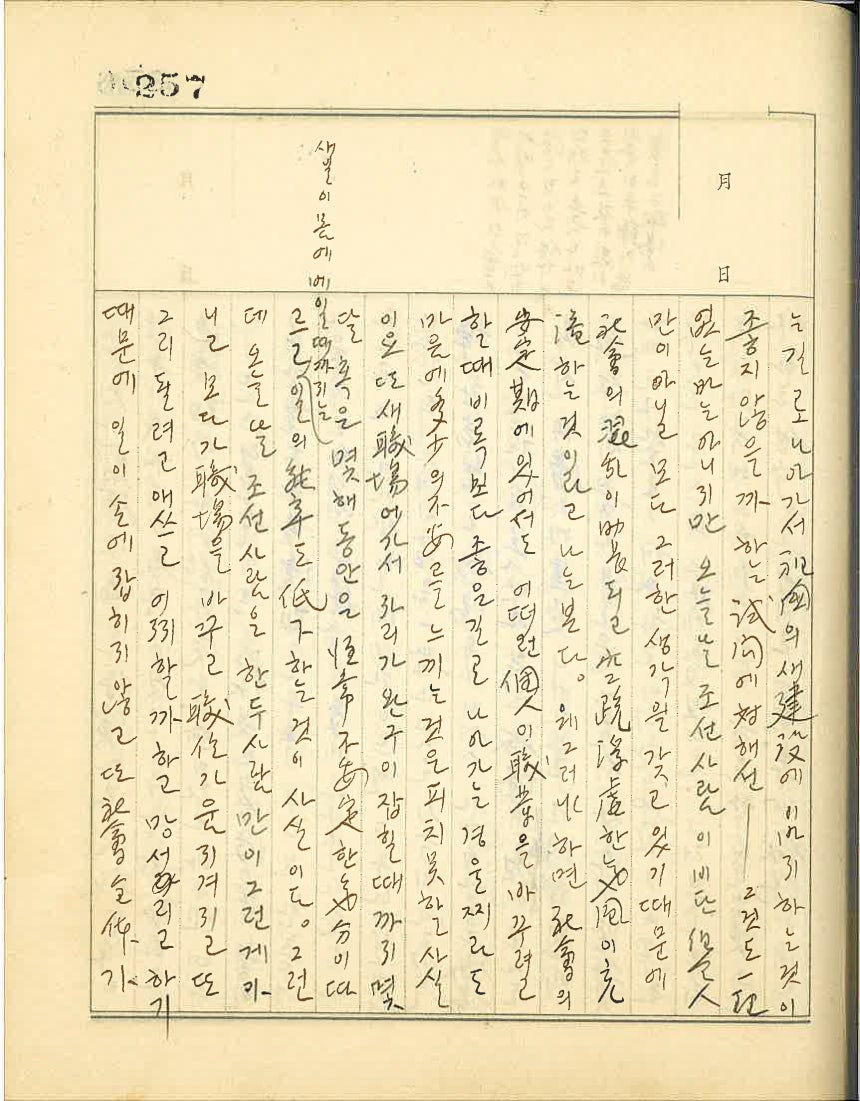 257
月 日
는 길로 나아가서 祖國의 새建設에 이바지하는 것이
좋지 않을까 하는 試問에 対해선 ── 그것도 一理
없는 바는 아니지만 오늘날 조선사람이 비단 個人
만이 아닐 모다 그러한 생각을 갖고 있기 때문에
社會의 混乱이 助長되고 虛한 氣風이 充
滿하는 것이라고 나는 본다。 웨그러냐 하면 社會의
安定期에 있어서도 어떠헌 個人이 職業을 바꾸려고
할 때 비록 보다 좋은 길로 나아가는 경우찌라도
마음에 多少의 不安을 느끼는 것은 피치 못할 사실
이요 또 새職場에 가서 자리가 완구이 잡힐 때까지 몇
달 혹은 몇 해 동안은 恒常 不安定한 氣分이 따
새일이 몸에 베일 때까지는
르고 일의 能率도 低下하는 것이 사실이다。 그런
데 오늘날 조선사람은 한두사람만이 그런게 아
니고 모다가 職場을 바꾸고 職位가 움지겨지고 또
그리 될려고 애쓰고 어찌할까 하고 망서리고 하기
때문에 일이 손에 잡히지 않고 또 社會全体가